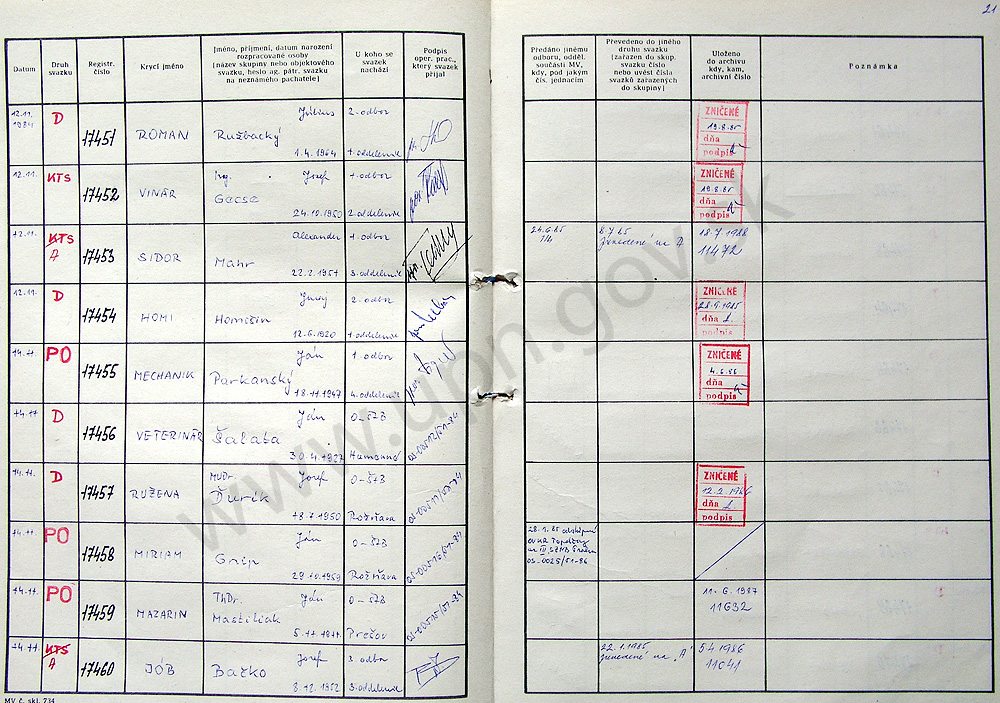 21
Datum
Druh svazku
Registr. číslo
Krycí jméno
Jméno, příjmení, datum narození
rozpracované osoby
(název skupiny nebo objektového
svazku, heslo ag. pátr. svazku
na neznámého pachatele)
U koho se
svazek
nachází
Podpis
oper. prac.,
který svazek
přijal
Předáno jinému
odboru, odděl.
součásti MV,
kdy, pod jakým
čís. jednacím
Převedeno do jiného
druhu svazku
(zařazen do skup.
svazku číslo
nebo uvést číslo
svazků zařazených
do skupiny)
Uloženo
do archivu
kdy, kam,
archivní číslo
Poznámka
12.11. 1984 D 17451 ROMAN Július Ružbacký 1.4.1964 2. odbor 1. oddelenie
ZNIČENÉ 19.8.85 dňa podpis
12.11. KTS 17452 VINÁR Ing. Jozef Gecse 24.10.1950 1. odbor 2. oddelenie
ZNIČENÉ 19.8.85 dňa podpis
12.11. KTS A 17453 SIDOR Alexander Mahr 22.2.1957 1. odbor 3. oddelenie
24.6.85 8.7.85 Zavedené na A 18.7.1988 11472
12.11. D 17454 HOMI Juraj Homišin 12.6.1920 2. odbor 1. oddelenie
ZNIČENÉ dňa podpis
14.11. PO 17455 MECHANIK Ján Parkanský 18.11.1947 1. odbor 4. oddelenie
ZNIČENÉ 4.6.86 dňa podpis
14.11 D 17456 VETERINÁR Ján Šalata 30.4.1927 O-ŠTB Humenné
14.11. D 17457 RUŽENA MUDr. Jozef Ďurík 18.7.1950 O-ŠTB Rožňava
ZNIČENÉ 12.2.1986 dňa podpis
14.11. PO 17458 MIRIAM Ján Gnip 29.10.1959 O-ŠTB Rožňava
28.1.85
OS-0025/51-86
14.11. PO 17459 MAZARIN ThDr. Ján Mastiliak 5.11.1911 O-ŠTB Prešov
11.6.1987 11632
14.11. KTS A 17460 JÓB Jozef Bačko 8.12.1952 3. odbor 3. oddelenie
22.1.1985, zavedené na "A" 5.4.1986 11041
MV č. skl. 734
www.upn.gov.sk